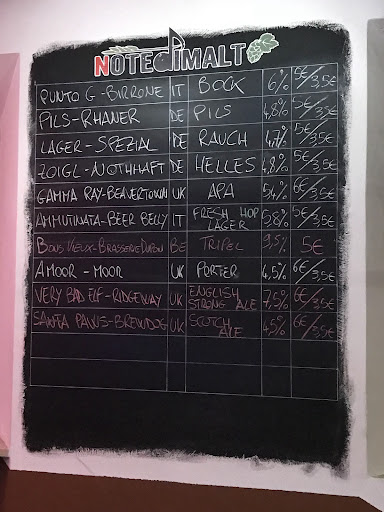 NOTEdiMALTO
PUNTO G - BIRRONE IT BOCK 6% 5€/3,5€
PILS - RHANER DE PILS 4,8% 5€/3,5€
LAGER - SPEZIAL DE RAUCH 4,7% 5€/3,5€
ZOIGL - NOTHHAFT DE HELLES 4,8% 5€/3,5€
GAMMA RAY - BEAVERTOWN UK APA 5,4% 6€/3,5€
AMMUTINATA - BEER BELLY IT FRESH HOP LAGER 5,8% 5€/3,5€
BONS VŒUX - BRASSERIE DUPONT BE TRIPEL 9,5% 5€
AMOOR - MOOR UK PORTER 4,5% 6€/3,5€
VERY BAD ELF - RIDGEWAY UK ENGLISH STRONG ALE 7,5% 6€/3,5€
SANTA PAWS - BREWDOG UK SCOTCH ALE 4,5% 6€/3,5€